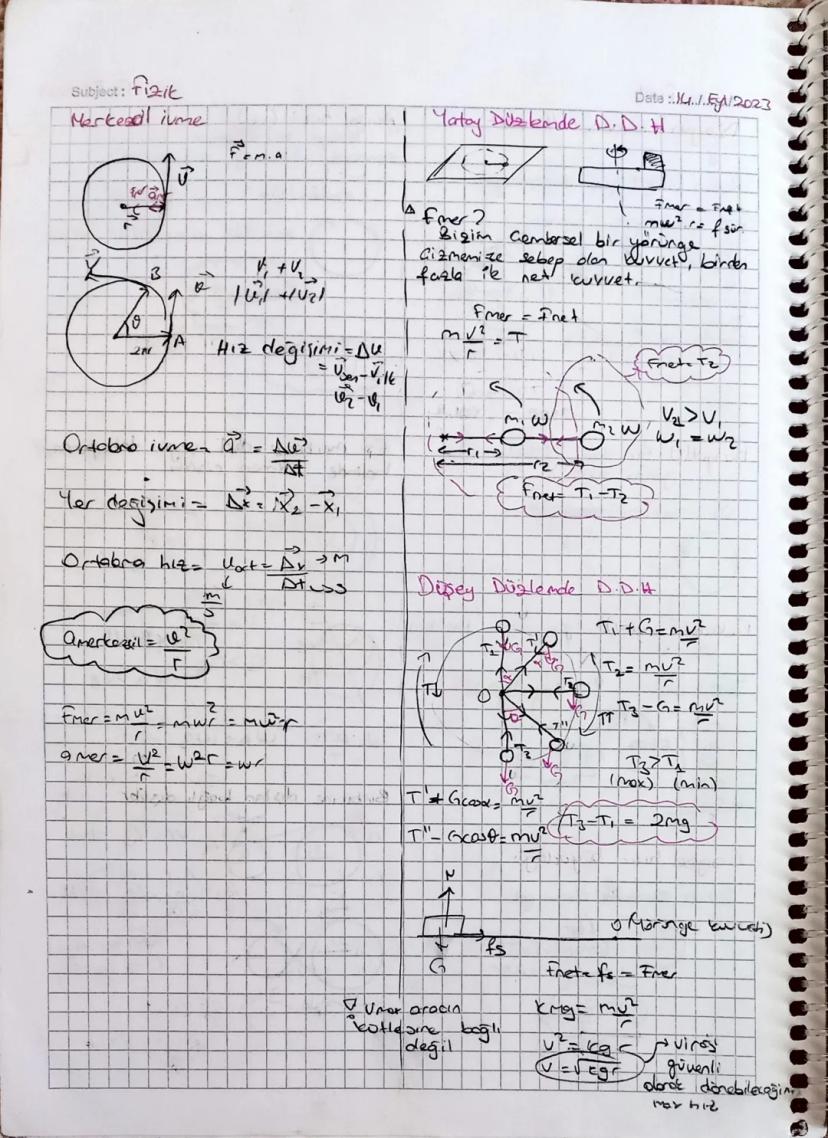 Subject: Fizik
Date: 14 / Eyl / 2023
Merkezcil ivme
F⃗ = m.a
V⃗
r
B
θ
A
V₁ + V₂
|V⃗₁| + |V⃗₂|
Hız değişimi = Δv
= V⃗son - V⃗ilk
v⃗₂ - v⃗₁
Ortalama ivme = a⃗ = Δv⃗/Δt
Yer değişimi = Δx⃗ = x⃗₂ - x⃗₁
Ortalama hız = Vort = Δx⃗/Δt → m → s
m/s
amerkezcil = v²/r
Fmer = mv²/r = mw²r
amer = v²/r = w²r
Yatay Düzlemde D.D.H
Fmer = Fnet
mw²r = fsür
Fmer?
Bizim Çembersel bir yörünge
çizmemize sebep olan kuvvet, birden
fazla ile net kuvvet.
Fmer = Fnet
mv²/r = T
Fnet = T₂
m₁ w
m₂ w
V₂ > V₁
w₁ = w₂
r₁
r₂
Fnet = T₁ - T₂
Düşey Düzlemde D.D.H
T₁ + G = mv²/r
T₂ = mv²/r
T₃ - G = mv²/r
O
T₃
G
T₃ > T₁
(max) (min)
T' + Gcosα = mv²/r
T'' - Gcosθ = mv²/r
T₃ - T₁ = 2mg
N
fs
G
O
Fnet = fs = Fmer
kmg = mv²/r
v² = kgr
v = √kgr
→ virajı
güvenli
olarak dönebileceğim
max hız
Vmax aracın
kütlesine bağlı
değil